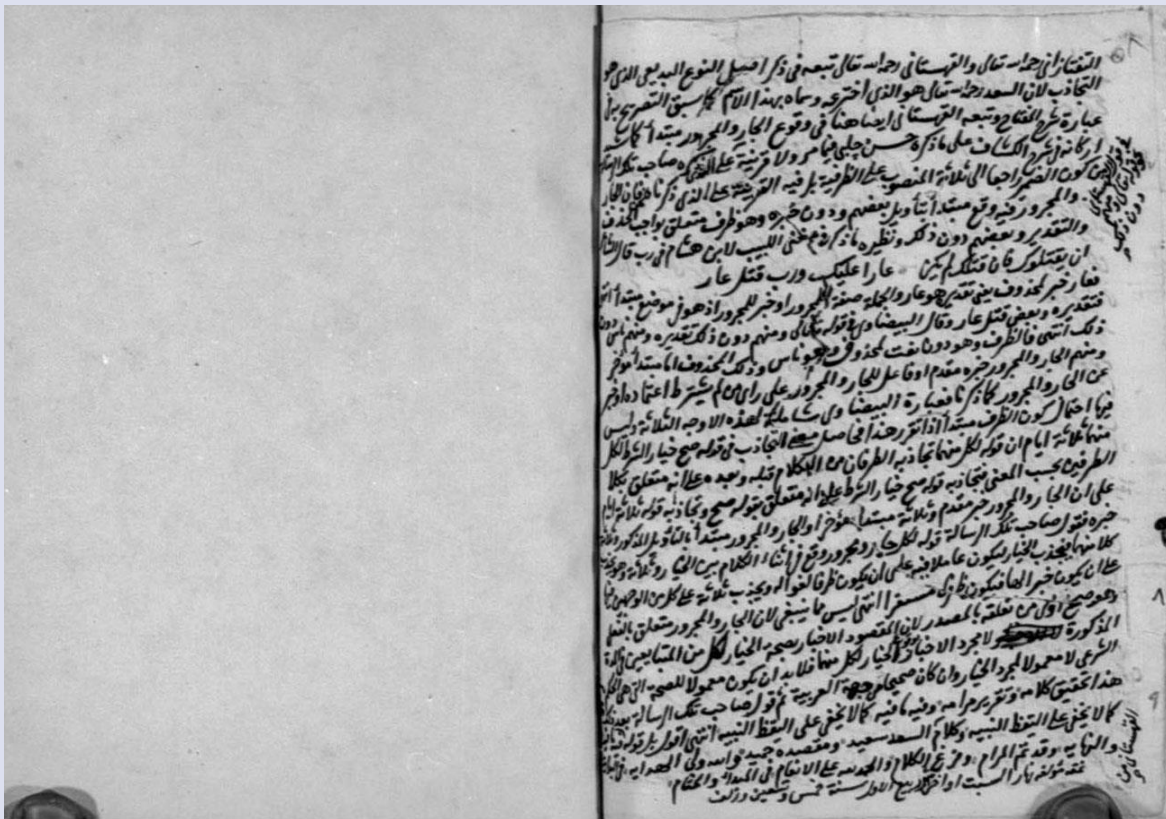 التفتازاني رحمه الله تعالى والقهستاني رحمه الله تعالى تبعه في ذكر اصل النوع البديعي الذي هو
التجاذب لان السعد رحمه الله تعالى هو الذي اخترعه وسماه بهذا الاسم كما سبق التصريح به في
عبارة شرح المفتاح وتبعه القهستاني ايضا هنا في وقوع الجار والمجرور مبتدأ
في شرح الكشاف على ما ذكره حسن جلبي فيما مر ولا قرينة على صاحب تلك الرسالة
كون الضمير راجعا الى ثلاثة المنصوب على الظرفية بل فيه القرينة على الذي ذكرنا فان الجار
والمجرور فيه وقع مبتدأ بتأويل بعضهم ودون خبره وهو ظرف متعلق بواجب الحذف
والتقدير وبعضهم دون ذلك ونظيره ما ذكره في مغني اللبيب لابن هشام في رب قال الشاعر
ان يقتلوك فان قتلك لم يكن عارا عليك ورب قتل عار
فعار خبر لمحذوف يعني تقديره هو عار والجملة صفة للمجرور او خبر للمجرور اذ هو في موضع مبتدأ انتهى
فتقديره وبعض قتل عار وقال البيضاوي في قوله تعالى ومنهم دون ذلك تقديره ومنهم ناس دون
ذلك انتهى فالظرف وهو دون نعت لمحذوف وهو ناس وذلك المحذوف اما مبتدأ مؤخر
ومنهم الجار والمجرور خبره مقدم او فاعل للجار والمجرور على رأي من لم يشترط اعتماده او خبر
عن الجار والمجرور كما ذكرنا فعبارة البيضاوي شاملة لهذه الاوجه الثلاثة وليس
فيها احتمال كون الظرف مبتدأ اذا تقرر هذا فحاصل معنى التجاذب في قوله صح خيار الشرط لكل
منهما ثلاثة ايام ان قوله لكل منهما تجاذبه الطرفان من الكلام قبله وبعده على انه متعلق بكلا
الطرفين بحسب المعنى فتجاذبه قوله صح خيار الشرط على انه متعلق بقوله صح وتجاذبه قوله ثلاثة ايام
على ان الجار والمجرور خبر مقدم وثلاثة مبتدأ مؤخر او الجار والمجرور مبتدأ بالتأويل المذكور وثلاثة
خبره فقول صاحب تلك الرسالة قوله لكل جار ومجرور وقع في اثناء الكلام بين الخيار وثلاثة
كلا منهما يجذب الخيار ليكون عاملا فيه على ان يكون ظرفا لغوا له ويجذب ثلاثة على كل من الوجهين
على ان يكون خبرا لها فيكون ظرفا مستقرا انتهى ليس مما ينبغي لان الجار والمجرور متعلق بالفعل
وهو صح اولى من تعلقه بالمصدر لان المقصود الاخبار بصحة الخيار لكل من المتبايعين في المدة
المذكورة لا مجرد الاخبار الخيار لكل منهما فلا بد ان يكون معمولا للصحة التي هي الحكم
الشرعي لا معمولا لمجرد الخيار وان كان صحيحا من جهة العربية ثم قول صاحب تلك الرسالة بعد ذلك
هذا تحقيق كلامه وتقرير مرامه وفيه ما فيه كما لا يخفى على اليقظ النبيه انتهى اقول بل قوله
كما لا يخفى على اليقظ النبيه وكلام السعد سعيد ومقصده حميد والله ولي الهداية في البداية
والنهاية وقد تم المرام وفرغ الكلام والحمد لله على الانعام في المبدأ والختام
نهار السبت اواخر ربيع الاول سنة خمس وتسعين والف